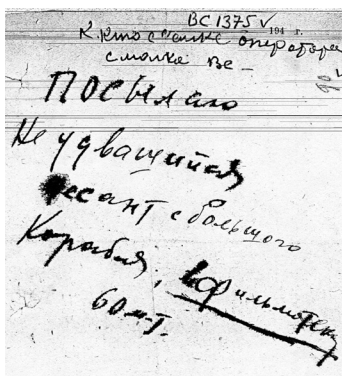 ВС 1375 V
194 г.
К. кто съемке оператора
Смолка Вс –
90
Посылаю
Не удващийся
десант с большого
Корабля, в фильмотеку
60 м-т.